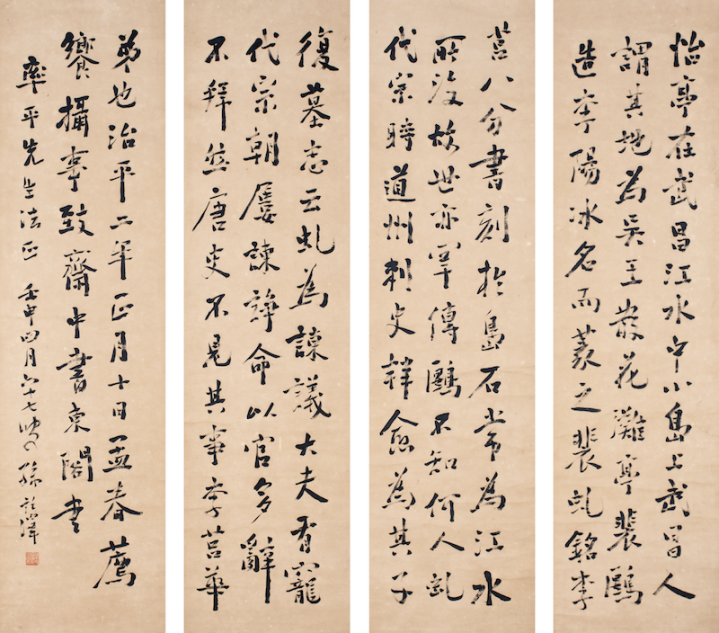 怡亭在武昌江水中小島上武昌人
謂其地為吳王散花灘亭裴鶠
造李陽冰名而篆之裴虬銘李
莒八分書刻於島石常為江水
所沒故世亦罕傳鶠不知何人虬
代宗時道州刺史韓愈為其子
復墓志云虬為諫議大夫有寵
代宗朝屢諫諍命以官多辭
不拜然唐史不見其事李莒華
弟也治平二年正月十日孟春薦
饗攝事致齋中書東閤書
率平先生法正 壬申四月六十七